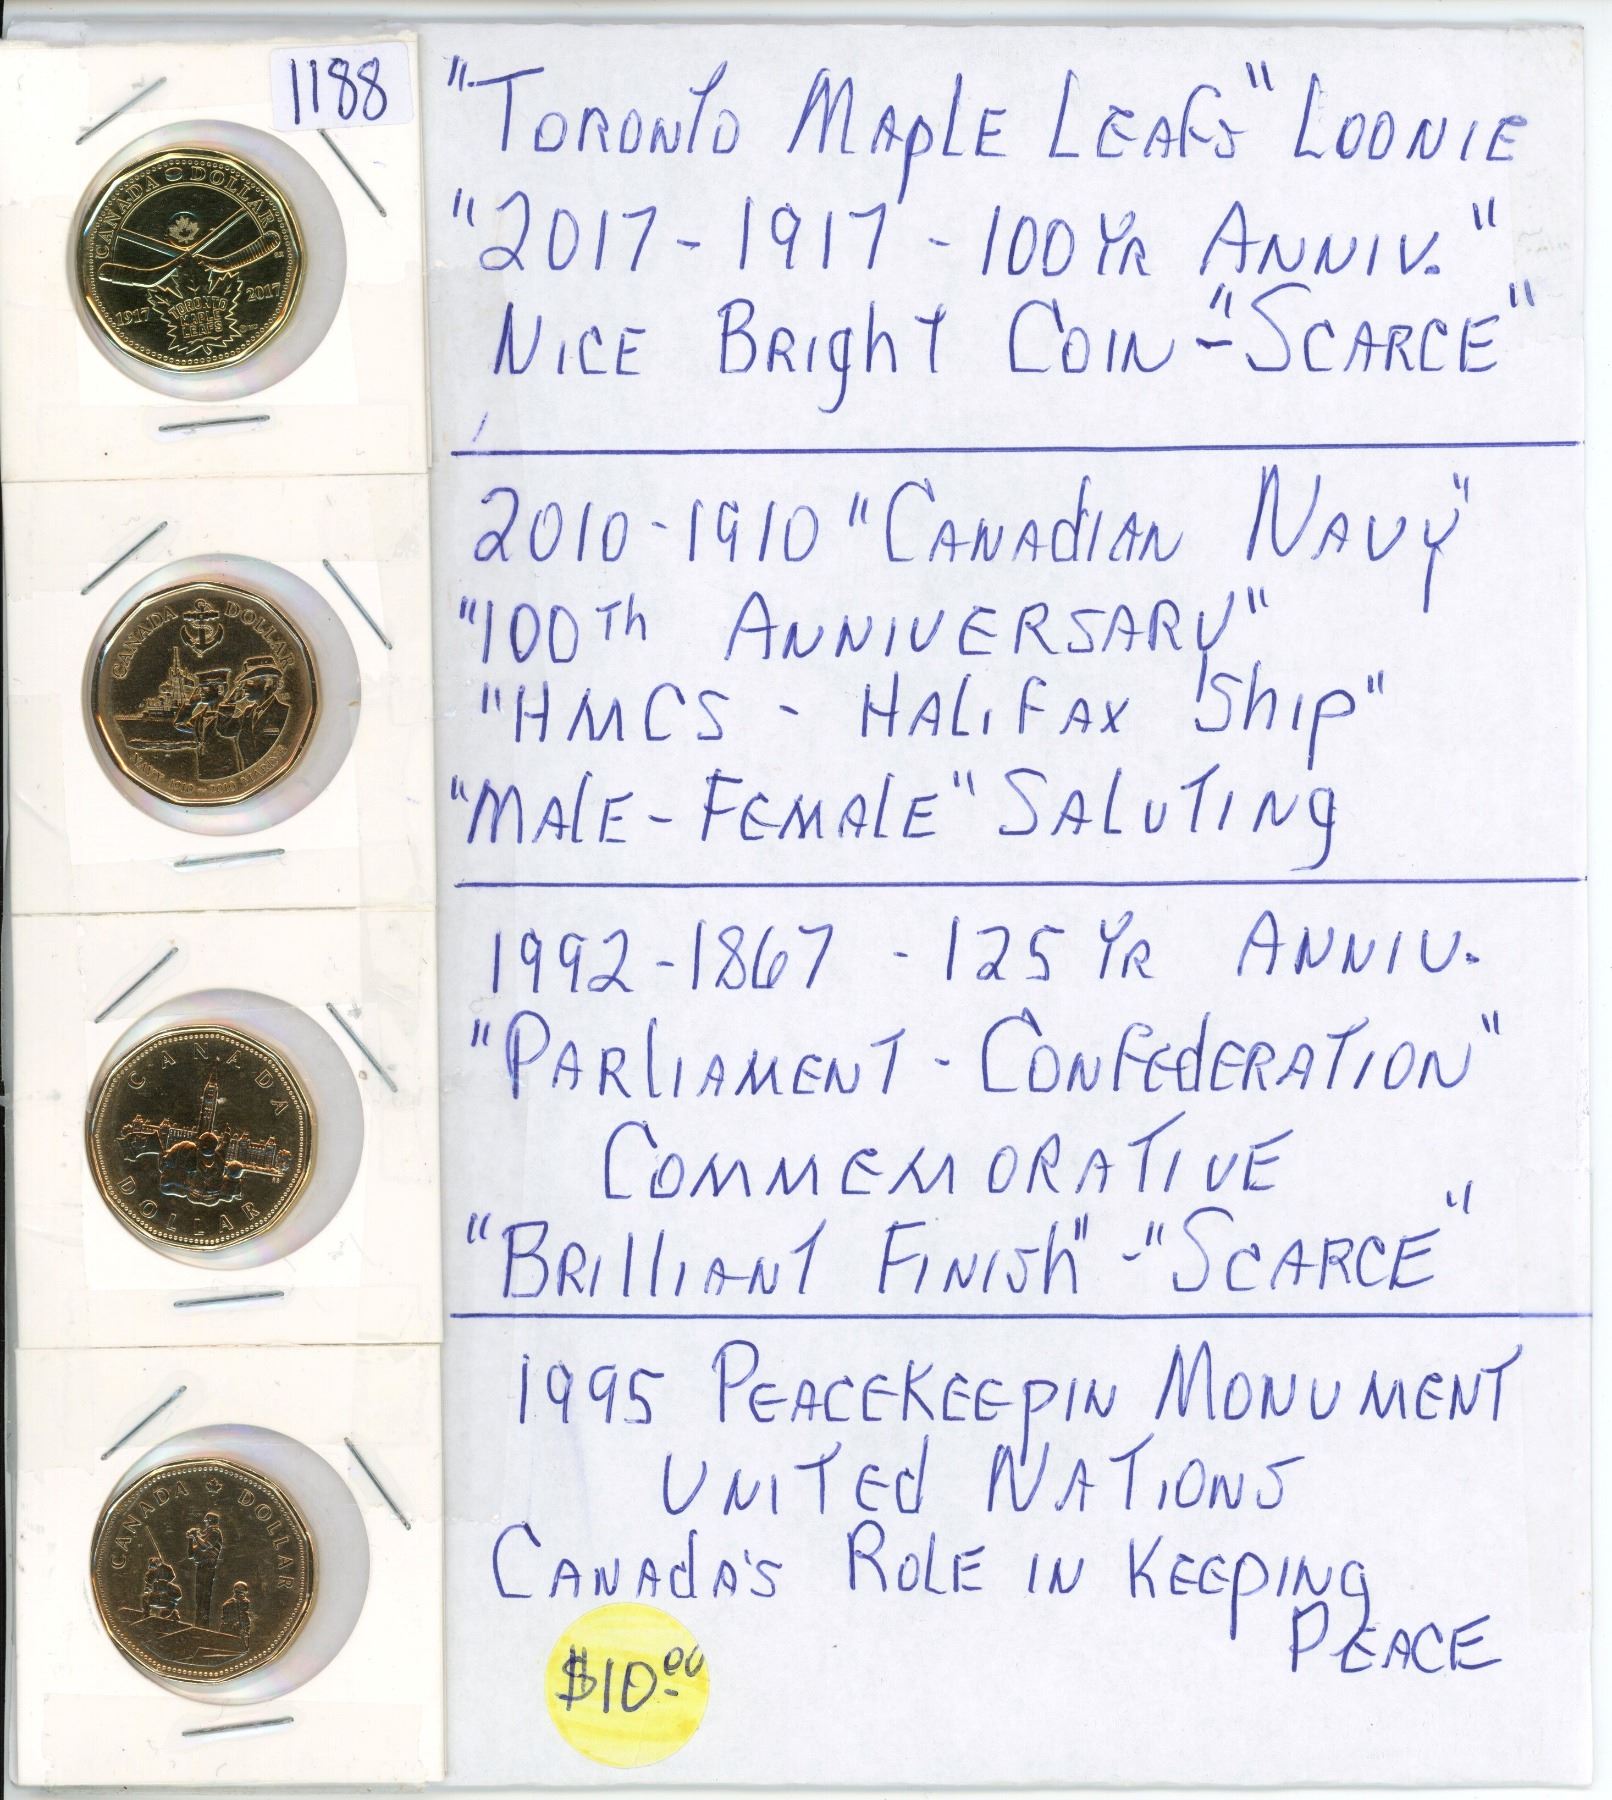 1188
CANADA DOLLAR
1917 2017
TORONTO
MAPLE
LEAFS
"TORONTO MAPLE LEAFS" LOONIE
"2017-1917-100 YR ANNIV."
NICE BRIGHT COIN-"SCARCE"
CANADA DOLLAR
NAVY 1910-2010 MARINE
2010-1910 "CANADIAN NAVY"
"100TH ANNIVERSARY"
"HMCS - HALIFAX SHIP"
"MALE-FEMALE" SALUTING
CANADA
DOLLAR
1992-1867 - 125 YR ANNIV.
"PARLIAMENT - CONFEDERATION"
COMMEMORATIVE
"BRILLIANT FINISH"-"SCARCE"
CANADA DOLLAR
1995 PEACEKEEPIN MONUMENT
UNITED NATIONS
CANADA'S ROLE IN KEEPING
PEACE
$10.00